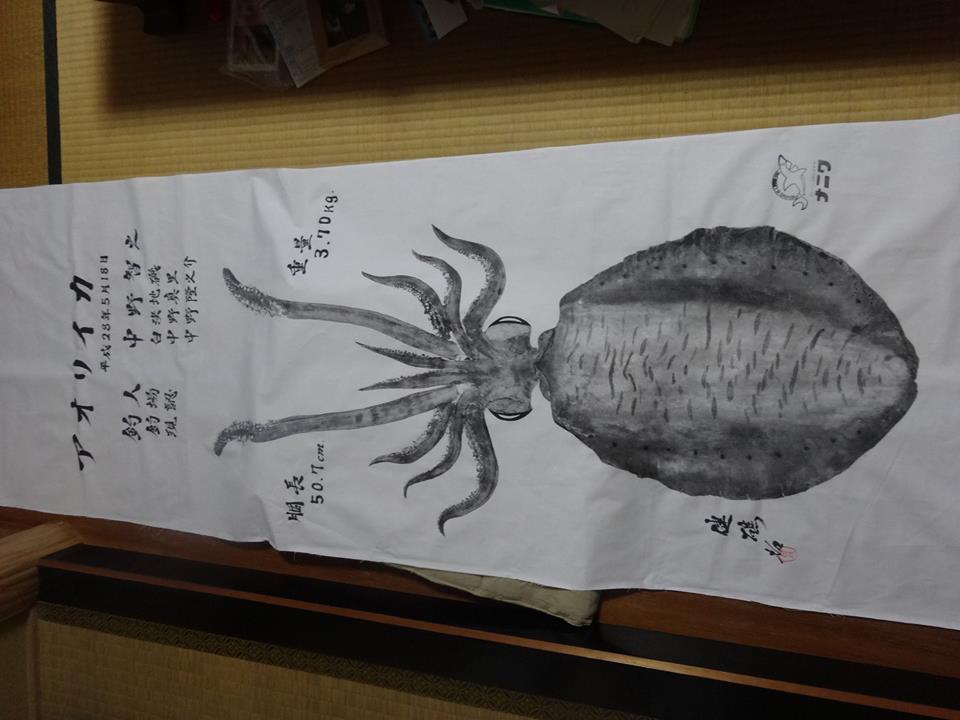 アオリイカ
平成28年5月18日
釣人 中野智之
釣場 白浜地磯
現認 中野真里
中野隆之介
重量
3.70kg.
胴長
50.7cm
ナニワ